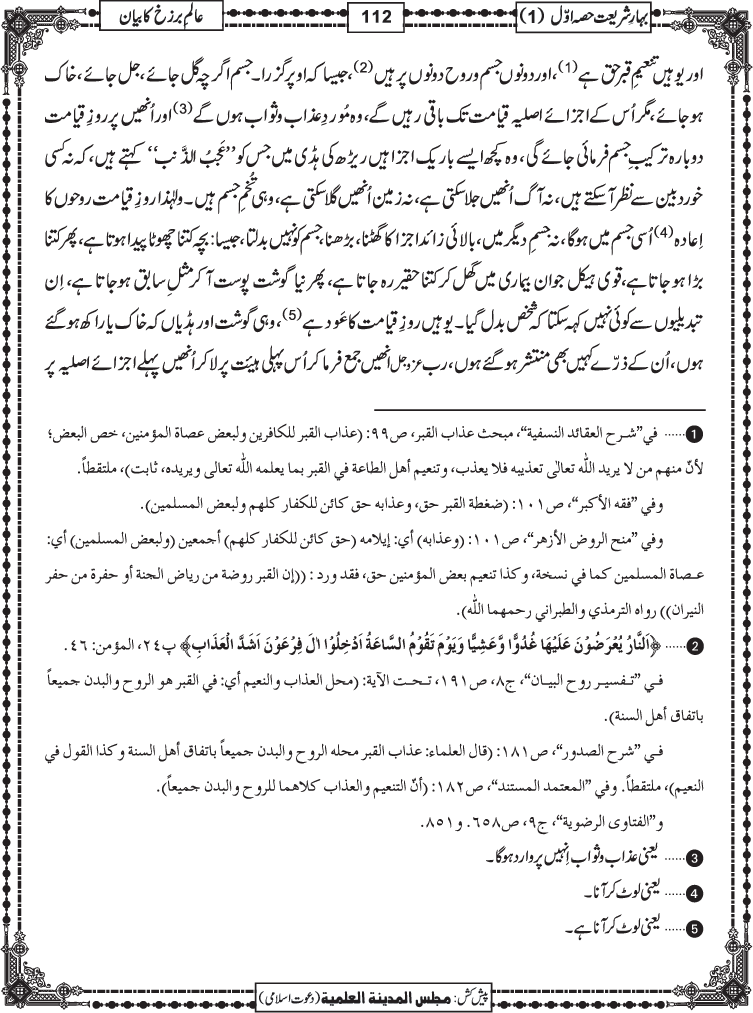 بہارِ شریعت حصہ اوّل (1)
112
عالمِ برزخ کا بیان
اور یوہیں تنعیمِ قبر حق ہے (1)، اور دونوں جسم و روح دونوں پر ہیں (2)، جیسا کہ اوپر گزرا۔ جسم اگرچہ گل جائے، جل جائے، خاک
ہو جائے، مگر اُس کے اجزائے اصلیہ قیامت تک باقی رہیں گے، وہ مُوردِ عذاب و ثواب ہوں گے (3) اور اُنھیں پر روزِ قیامت
دوبارہ ترکیبِ جسم فرمائی جائے گی، وہ کچھ ایسے باریک اجزا ہیں ریڑھ کی ہڈی میں جس کو ’’عَجبُ الذَّنب‘‘ کہتے ہیں، کہ نہ کسی
خوردبین سے نظر آسکتے ہیں، نہ آگ اُنھیں جلا سکتی ہے، نہ زمین اُنھیں گلا سکتی ہے، وہی تُخمِ جسم ہیں۔ ولہٰذا روزِ قیامت روحوں کا
اِعادہ (4) اُسی جسم میں ہوگا، نہ جسمِ دیگر میں، بالائی زائد اجزا کا گھٹنا، بڑھنا، جسم کو نہیں بدلتا، جیسا: بچہ کتنا چھوٹا پیدا ہوتا ہے، پھر کتنا
بڑا ہو جاتا ہے، قوی ہیکل جوان بیماری میں گھل کر کتنا حقیر رہ جاتا ہے، پھر نیا گوشت پوست آکر مثلِ سابق ہو جاتا ہے، اِن
تبدیلیوں سے کوئی نہیں کہہ سکتا کہ شخص بدل گیا۔ یوہیں روزِ قیامت کا عَود ہے (5)، وہی گوشت اور ہڈیاں کہ خاک یا راکھ ہوگئے
ہوں، اُن کے ذرّے کہیں بھی منتشر ہوگئے ہوں، رب عزوجل انھیں جمع فرما کر اُس پہلی ہیئت پر لا کر اُنھیں پہلے اجزائے اصلیہ پر
1 ...... في ”شرح العقائد النسفية“، مبحث عذاب القبر، ص٩٩: (عذاب القبر للكافرين ولبعض عصاة المؤمنين، خص البعض؛
لأنّ منهم من لا يريد اللّٰه تعالٰى تعذيبه فلا يعذب، وتنعيم أهل الطاعة في القبر بما يعلمه اللّٰه تعالى ويريده، ثابت)، ملتقطاً.
وفي ”فقه الأكبر“، ص١٠١: (ضغطة القبر حق، وعذابه حق كائن للكفار كلهم ولبعض المسلمين).
وفي ”منح الروض الأزهر“، ص١٠١: (وعذابه) أي: إيلامه (حق كائن للكفار كلهم) أجمعين (ولبعض المسلمين) أي:
عصاة المسلمين كما في نسخة، وكذا تنعيم بعض المؤمنين حق، فقد ورد : ((إن القبر روضة من رياض الجنة أو حفرة من حفر
النيران)) رواه الترمذي والطبراني رحمهما اللّٰه).
2 ...... ﴿اَلنَّارُ يُعْرَضُوْنَ عَلَيْهَا غُدُوًّا وَّعَشِيًّا وَيَوْمَ تَقُوْمُ السَّاعَةُ اَدْخِلُوْا اٰلَ فِرْعَوْنَ اَشَدَّ الْعَذَابِ﴾ پ٢٤، المؤمن: ٤٦.
في ”تفسير روح البيان“، ج٨، ص١٩١، تحت الآية: (محل العذاب والنعيم أي: في القبر هو الروح والبدن جميعاً
باتفاق أهل السنة).
في ”شرح الصدور“، ص١٨١: (قال العلماء: عذاب القبر محله الروح والبدن جميعاً باتفاق أهل السنة وكذا القول في
النعيم)، ملتقطاً. وفي ”المعتمد المستند“، ص١٨٢: (أنّ التنعيم والعذاب كلاهما للروح والبدن جميعاً).
و”الفتاوى الرضوية“، ج٩، ص٦٥٨. و٨٥١.
3 ...... یعنی عذاب و ثواب اِنہیں پر وارد ہوگا۔
4 ...... یعنی لوٹ کر آنا۔
5 ...... یعنی لوٹ کر آنا ہے۔
پیش کش: مجلس المدينة العلمية (دعوت اسلامی)